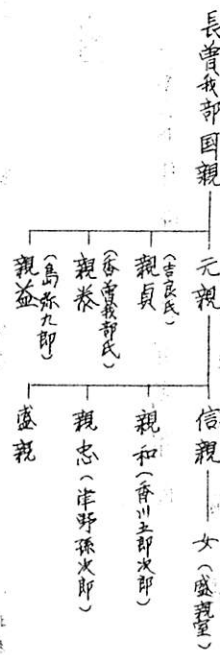 長曽我部国親
元親
親貞
(吉良氏)
親泰
(香曽我部氏)
親益
(島弥九郎)
信親
女(盛親室)
親和(香川五郎次郎)
親忠(津野孫次郎)
盛親